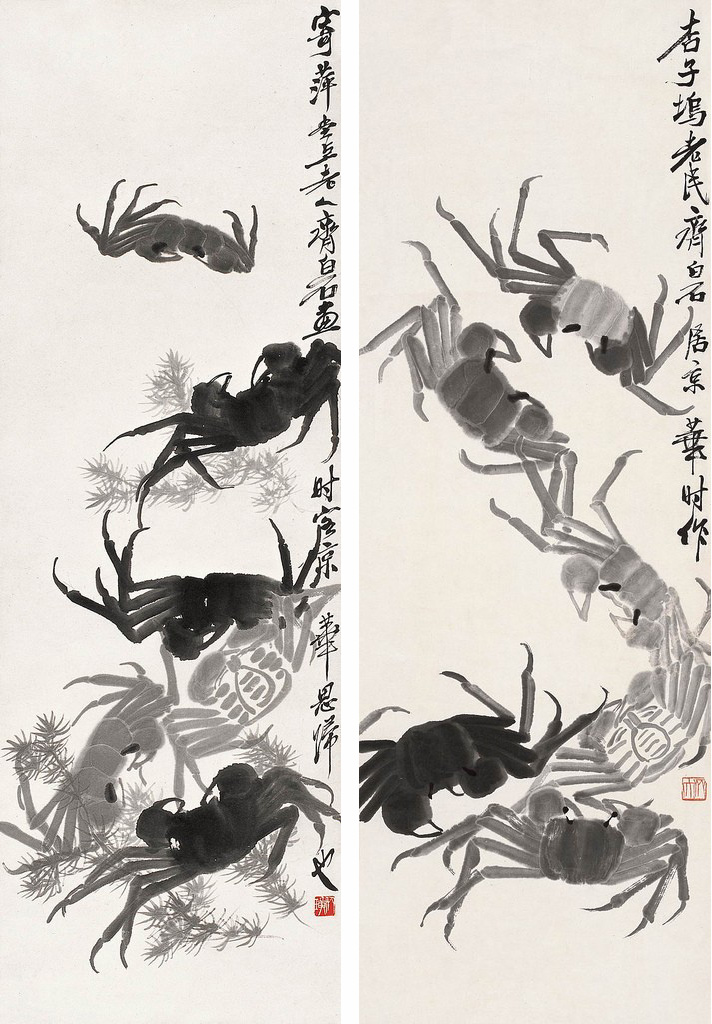 寄萍堂上老人齊白石畫时客京華思歸也
杏子塢老民齊白石居京華时作